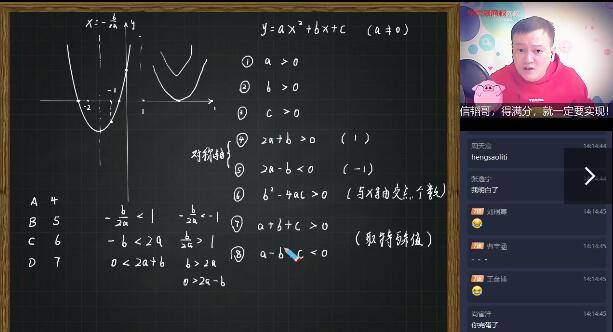 x = -b/2a
y
-2
-1
1
1
y = ax² + bx + c (a ≠ 0)
① a > 0
② b > 0
③ c > 0
对称轴
④ 2a + b > 0 (1)
⑤ 2a - b < 0 (-1)
⑥ b² - 4ac > 0 (与x轴交点个数)
⑦ a + b + c > 0
⑧ a - b c < 0
(取特殊值)
A 4
B 5
C 6
D 7
-b/2a < 1
-b < 2a
0 < 2a + b
-b/2a < -1
b/2a > 1
b > 2a
0 > 2a - b
信韬哥，得满分，就一定要实现！
14:14:44
hengsaoliti
14:14:44
我明白了
14:14:45
14:14:45
- - -
14:14:45
14:14:45